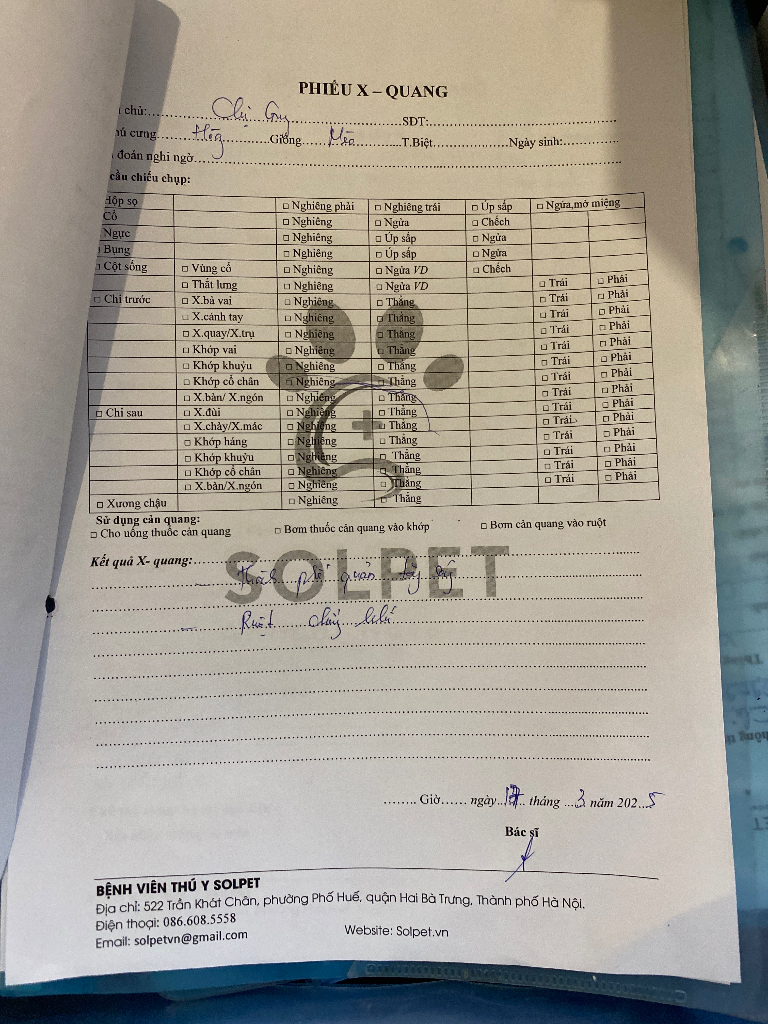 PHIẾU X – QUANG
chủ: Chị SĐT:
ú cưng Giống Mèo T.Biệt Ngày sinh:
đoán nghi ngờ
cầu chiếu chụp:
Hộp sọ □ Nghiêng phải □ Nghiêng trái □ Úp sấp □ Ngửa,mở miệng
Cổ □ Nghiêng □ Ngửa □ Chếch
Ngực □ Nghiêng □ Úp sấp □ Ngửa
Bụng □ Nghiêng □ Úp sấp □ Ngửa
□ Cột sống □ Vùng cổ □ Nghiêng □ Ngửa VD □ Chếch
□ Thắt lưng □ Nghiêng □ Ngửa VD □ Trái □ Phải
□ Chi trước □ X.bả vai □ Nghiêng □ Thẳng □ Trái □ Phải
□ X.cánh tay □ Nghiêng □ Thẳng □ Trái □ Phải
□ X.quay/X.trụ □ Nghiêng □ Thẳng □ Trái □ Phải
□ Khớp vai □ Nghiêng □ Thẳng □ Trái □ Phải
□ Khớp khuỷu □ Nghiêng □ Thẳng □ Trái □ Phải
□ Khớp cổ chân □ Nghiêng □ Thẳng □ Trái □ Phải
□ X.bàn/ X.ngón □ Nghiêng □ Thẳng □ Trái □ Phải
□ Chi sau □ X.đùi □ Nghiêng □ Thẳng □ Trái □ Phải
□ X.chày/X.mác □ Nghiêng □ Thẳng □ Trái □ Phải
□ Khớp háng □ Nghiêng □ Thẳng □ Trái □ Phải
□ Khớp khuỷu □ Nghiêng □ Thẳng □ Trái □ Phải
□ Khớp cổ chân □ Nghiêng □ Thẳng □ Trái □ Phải
□ X.bàn/X.ngón □ Nghiêng □ Thẳng □ Trái □ Phải
□ Xương chậu □ Nghiêng □ Thẳng
Sử dụng cản quang:
□ Cho uống thuốc cản quang □ Bơm thuốc cản quang vào khớp □ Bơm cản quang vào ruột
Kết quả X- quang:
SOLPET
– Thành phế quản tăng
– Ruột khí
Giờ ngày 17 tháng 3 năm 2025
Bác sĩ
BỆNH VIỆN THÚ Y SOLPET
Địa chỉ: 522 Trần Khát Chân, phường Phố Huế, quận Hai Bà Trưng, Thành phố Hà Nội.
Điện thoại: 086.608.5558
Email: solpetvn@gmail.com Website: Solpet.vn